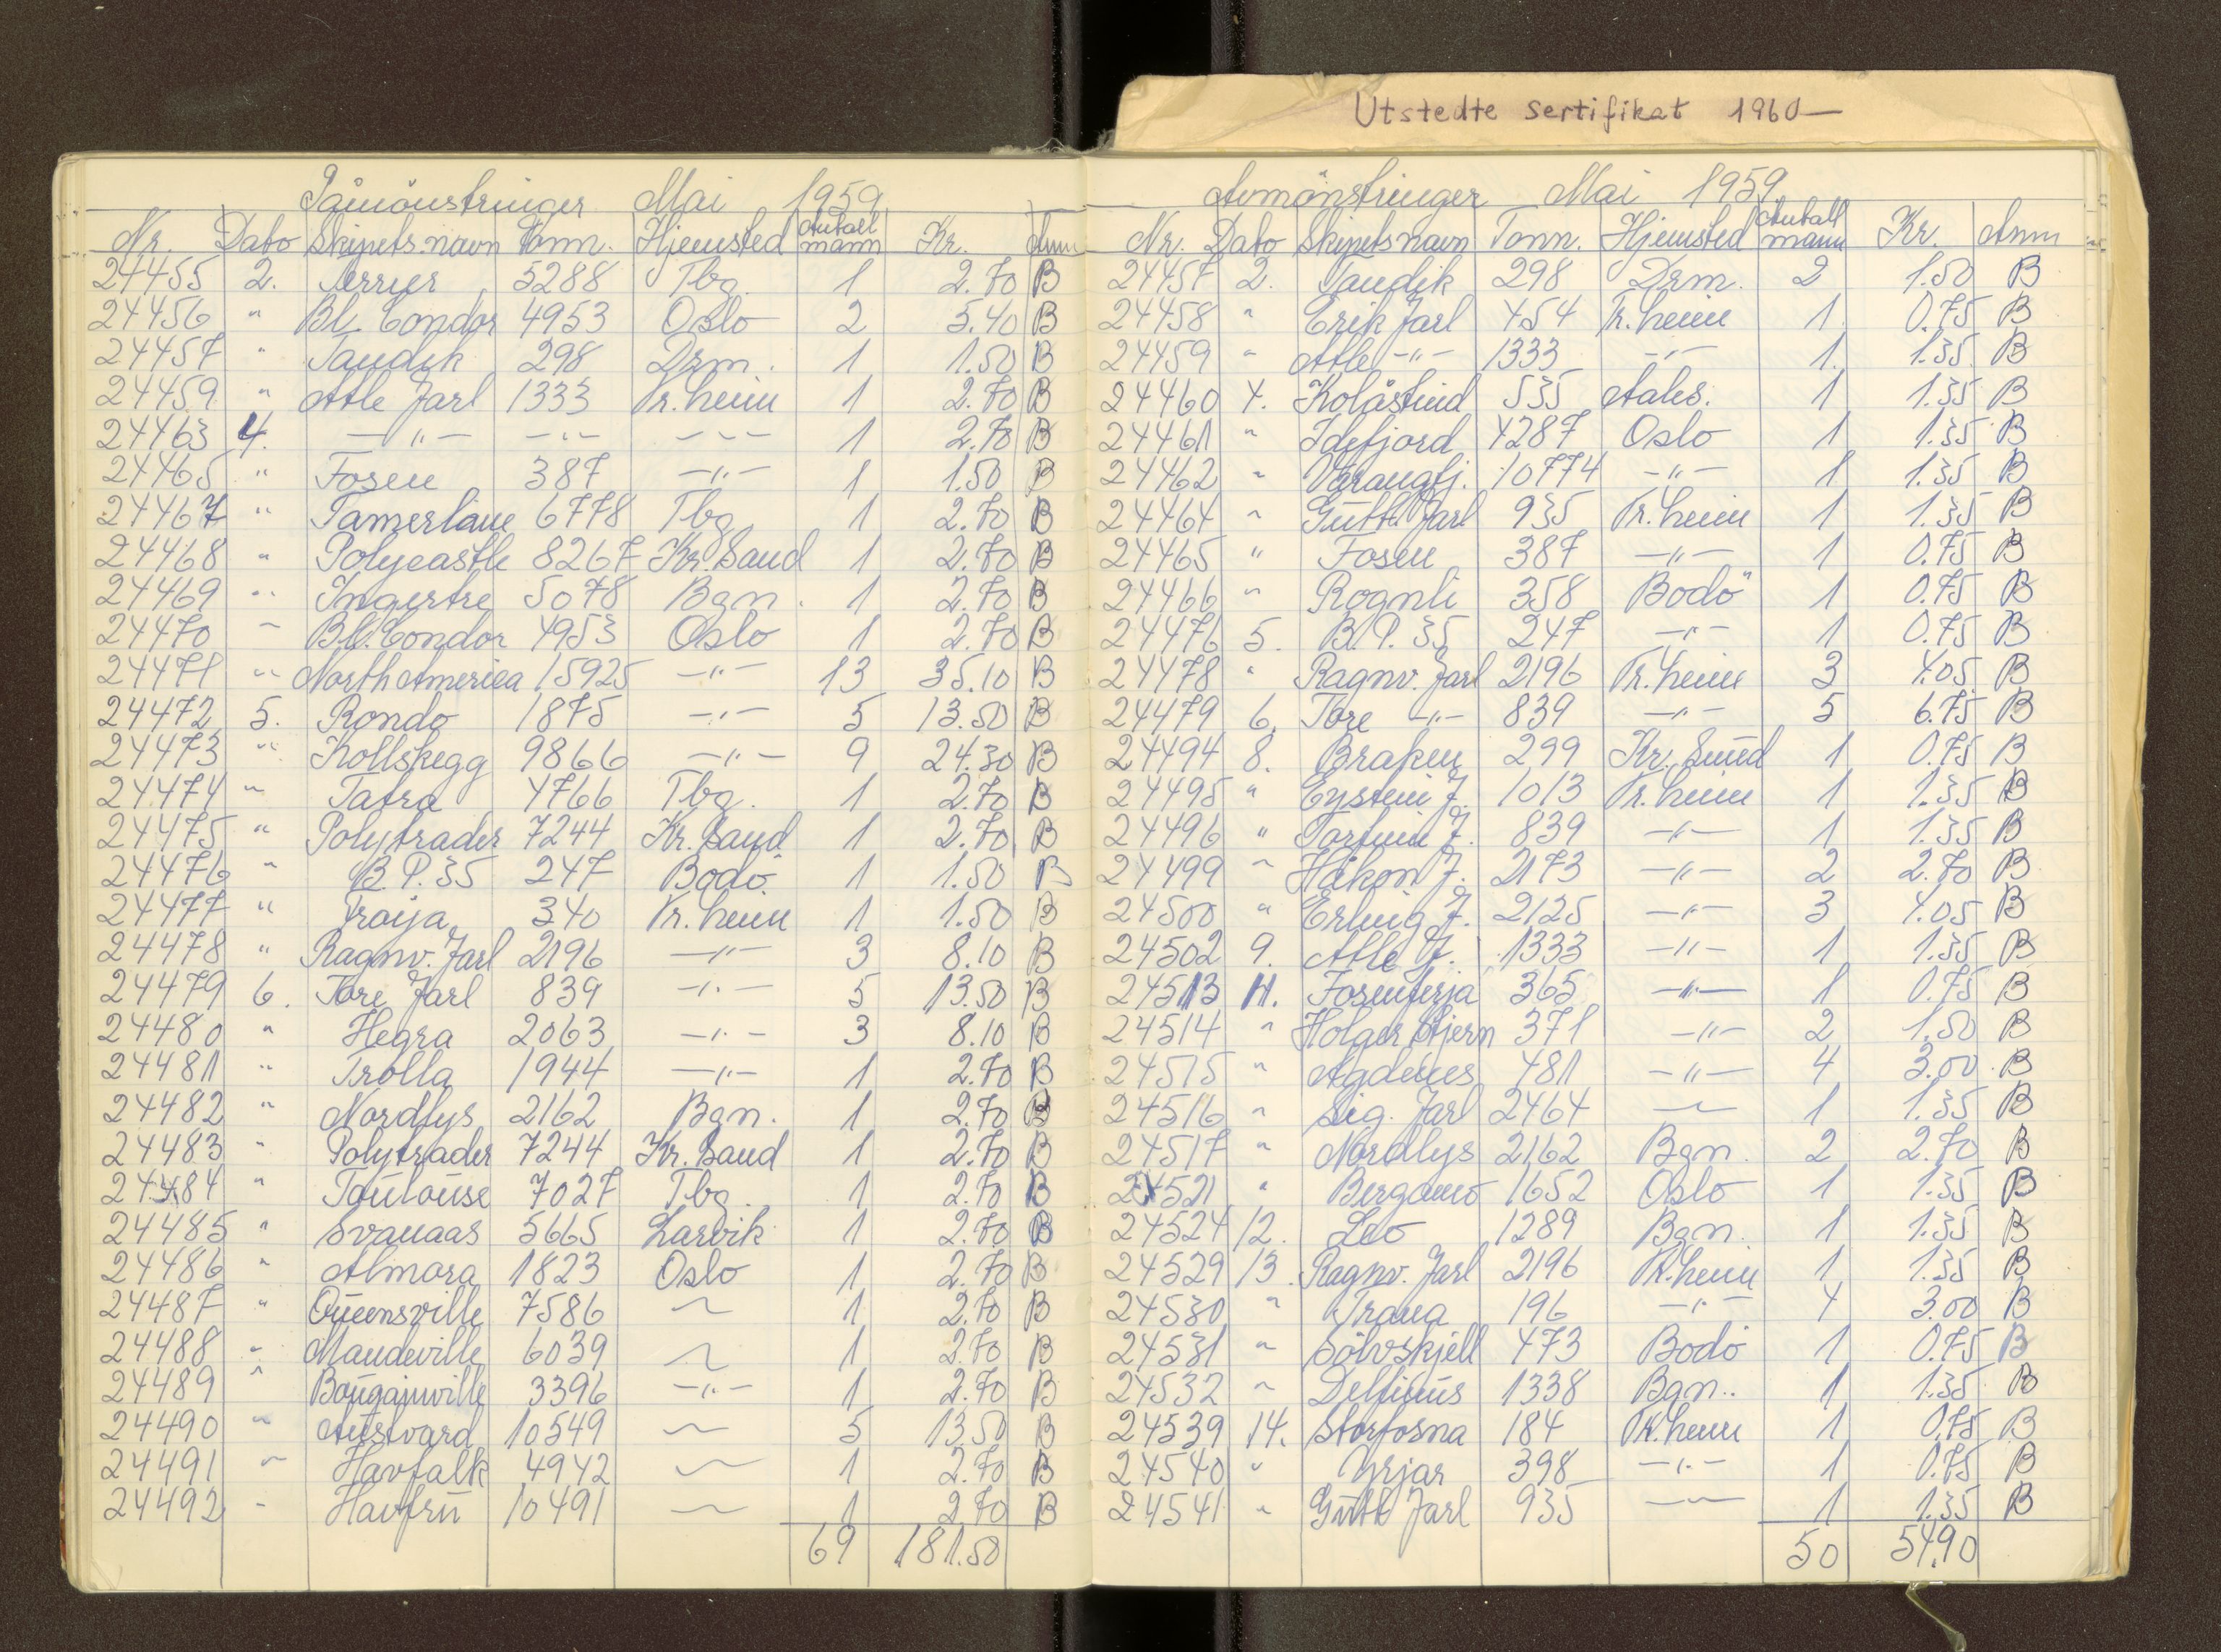 Utstedte sertifikat 1960—
Påmönstringer Mai 1959
Nr. Dato Skipets navn Tonn. Hjemsted Antall mann Kr. Anm
24455 2. Ferrier 5288 Tbg. 1 2.70 B
24456 " Bl. Condor 4953 Oslo 2 5.40 B
24457 " Taudik 298 Drm. 1 1.50 B
24459 " Atle Jarl 1333 Tr.heim 1 2.70 B
24463 4. —"— —"— —"— 1 2.70 B
24465 " Fosen 387 —"— 1 1.50 B
24467 " Tamerlane 6778 Tbg 1 2.70 B
24468 " Polycastle 8267 Kr.Sand 1 2.70 B
24469 " Ingertre 5078 Bgn. 1 2.70 B
24470 " Bl. Condor 4953 Oslo 1 2.70 B
24471 " North America 15925 —"— 13 35.10 B
24472 5. Rondo 1875 —"— 5 13.50 B
24473 " Kollskegg 9866 —"— 9 24.30 B
24474 " Tatra 4766 Tbg. 1 2.70 B
24475 " Polytrader 7244 Kr. Sand 1 2.70 B
24476 " B.P. 35 247 Bodö 1 1.50 B
24477 " Froija 340 Tr.heim 1 1.50 B
24478 " Ragnv. Jarl 2196 —"— 3 8.10 B
24479 6. Tore Jarl 839 —"— 5 13.50 B
24480 " Hegra 2063 —"— 3 8.10 B
24481 " Trolla 1944 —"— 1 2.70 B
24482 " Nordlys 2162 Bgn. 1 2.70 B
24483 " Polytrader 7244 Kr. Sand 1 2.70 B
24484 " Toulouse 7027 Tbg. 1 2.70 B
24485 " Svanaas 5665 Larvik 1 2.70 B
24486 " Almora 1823 Oslo 1 2.70 B
24487 " Queensville 7586 — 1 2.70 B
24488 " Mandeville 6039 — 1 2.70 B
24489 " Bougainville 3396 —"— 1 2.70 B
24490 " Austvard 10549 — 5 13.50 B
24491 " Havfalk 4942 — 1 2.70 B
24492 " Havfru 10491 — 1 2.70 B
69 181.50
Avmönstringer Mai 1959
Nr. Dato Skipets navn Tonn. Hjemsted Antall mann Kr. Anm
24457 2. Taudik 298 Drm. 2 1.50 B
24458 " Erik Jarl 454 Tr.heim 1 0.75 B
24459 " Atle —"— 1333 —"— 1 1.35 B
24460 4. Kolåstind 535 Aales. 1 1.35 B
24461 " Idefjord 4287 Oslo 1 1.35 B
24462 " Varangfj. 10774 —"— 1 1.35 B
24464 " Gutt. Jarl 935 Tr.heim 1 1.35 B
24465 " Fosen 387 —"— 1 0.75 B
24466 " Rognli 358 Bodö 1 0.75 B
24476 5. B.P. 35 247 —"— 1 0.75 B
24478 " Ragnv. Jarl 2196 Tr.heim 3 4.05 B
24479 6. Tore —"— 839 —"— 5 6.75 B
24494 8. Braken 299 Kr. Sund 1 0.75 B
24495 " Eystein J. 1013 Tr.heim 1 1.35 B
24496 " Torfinn J. 839 —"— 1 1.35 B
24499 " Håkon J. 2173 —"— 2 2.70 B
24500 " Erling J. 2125 —"— 3 4.05 B
24502 9. Atle J. 1333 —"— 1 1.35 B
24513 11. Fosenferja 365 —"— 1 0.75 B
24514 " Holger Stjern 371 —"— 2 1.50 B
24515 " Agdenes 481 —"— 4 3.00 B
24516 " Sig. Jarl 2464 — 1 1.35 B
24517 " Nordlys 2162 Bgn. 2 2.70 B
24521 " Bergamo 1652 Oslo 1 1.35 B
24524 12. Leo 1289 Bgn. 1 1.35 B
24529 13. Ragnv. Jarl 2196 Tr.heim 1 1.35 B
24530 " Trana 196 —"— 4 3.00 B
24531 " Sölvskjell 473 Bodö 1 0.75 B
24532 " Delfinus 1338 Bgn.. 1 1.35 B
24539 14. Storfosna 184 Tr.heim 1 0.75 B
24540 " Yrjar 398 —"— 1 0.75 B
24541 " Gutt Jarl 935 — 1 1.35 B
50 54.90